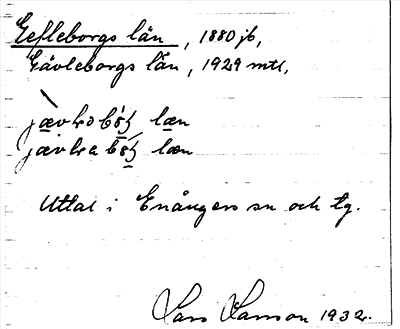 Gefleborgs län, 1880 jb,
Gävleborgs län, 1929 mtl,
læn
læn
Uttal i Enångers sn och tg.
Lars Larson 1932.